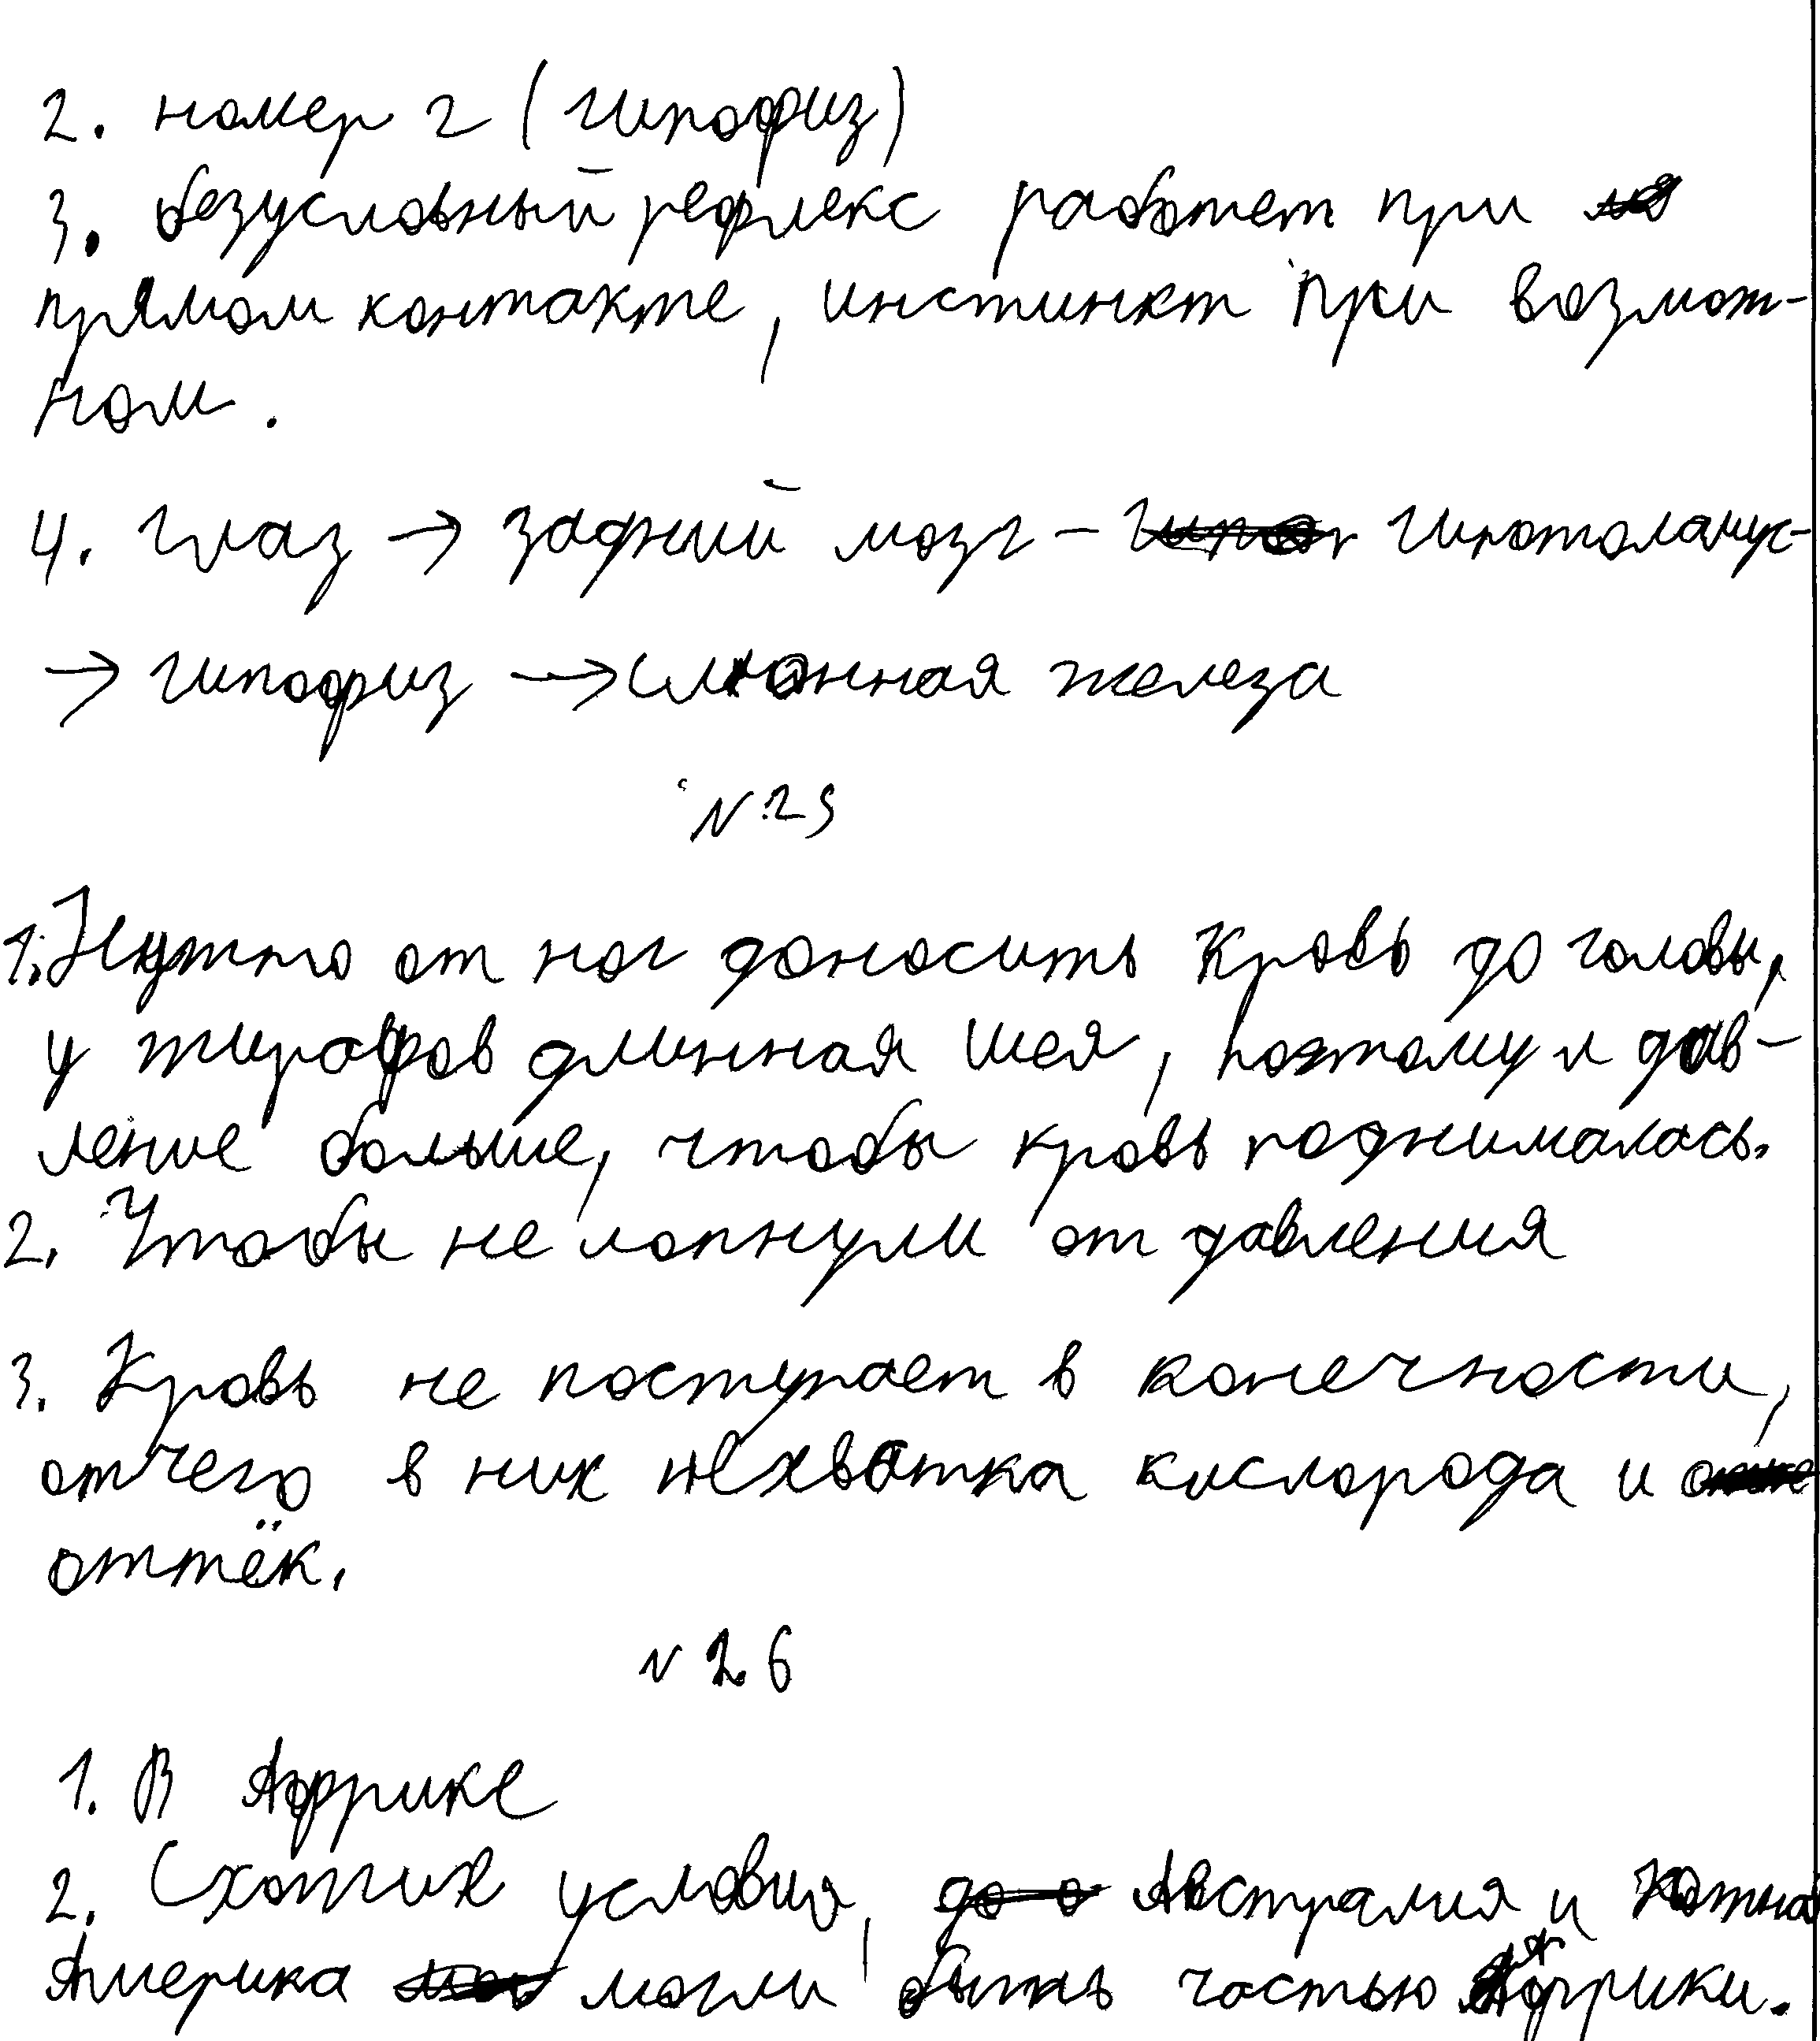 2. номер 2 (гипофиз)
3. безусловный рефлекс работет при
прямом контакте, инстинкт при возмож-
ном.
4. глаз → задний мозг - гипотоламус-
→ гипофиз → слюнная железа
N 25
1. Нужно от ног доносить кровь до головы,
у жирафов длинная шея, поэтому и дав-
ление больше, чтобы кровь поднималась.
2. Чтобы не лопнули от давления
3. Кровь не поступает в конечности,
отчего в них нехватка кислорода и
оттёк.
N 26
1. В Африке
2. Схожие условия, Австралия и Южна
Америка могли быть частью Африки.